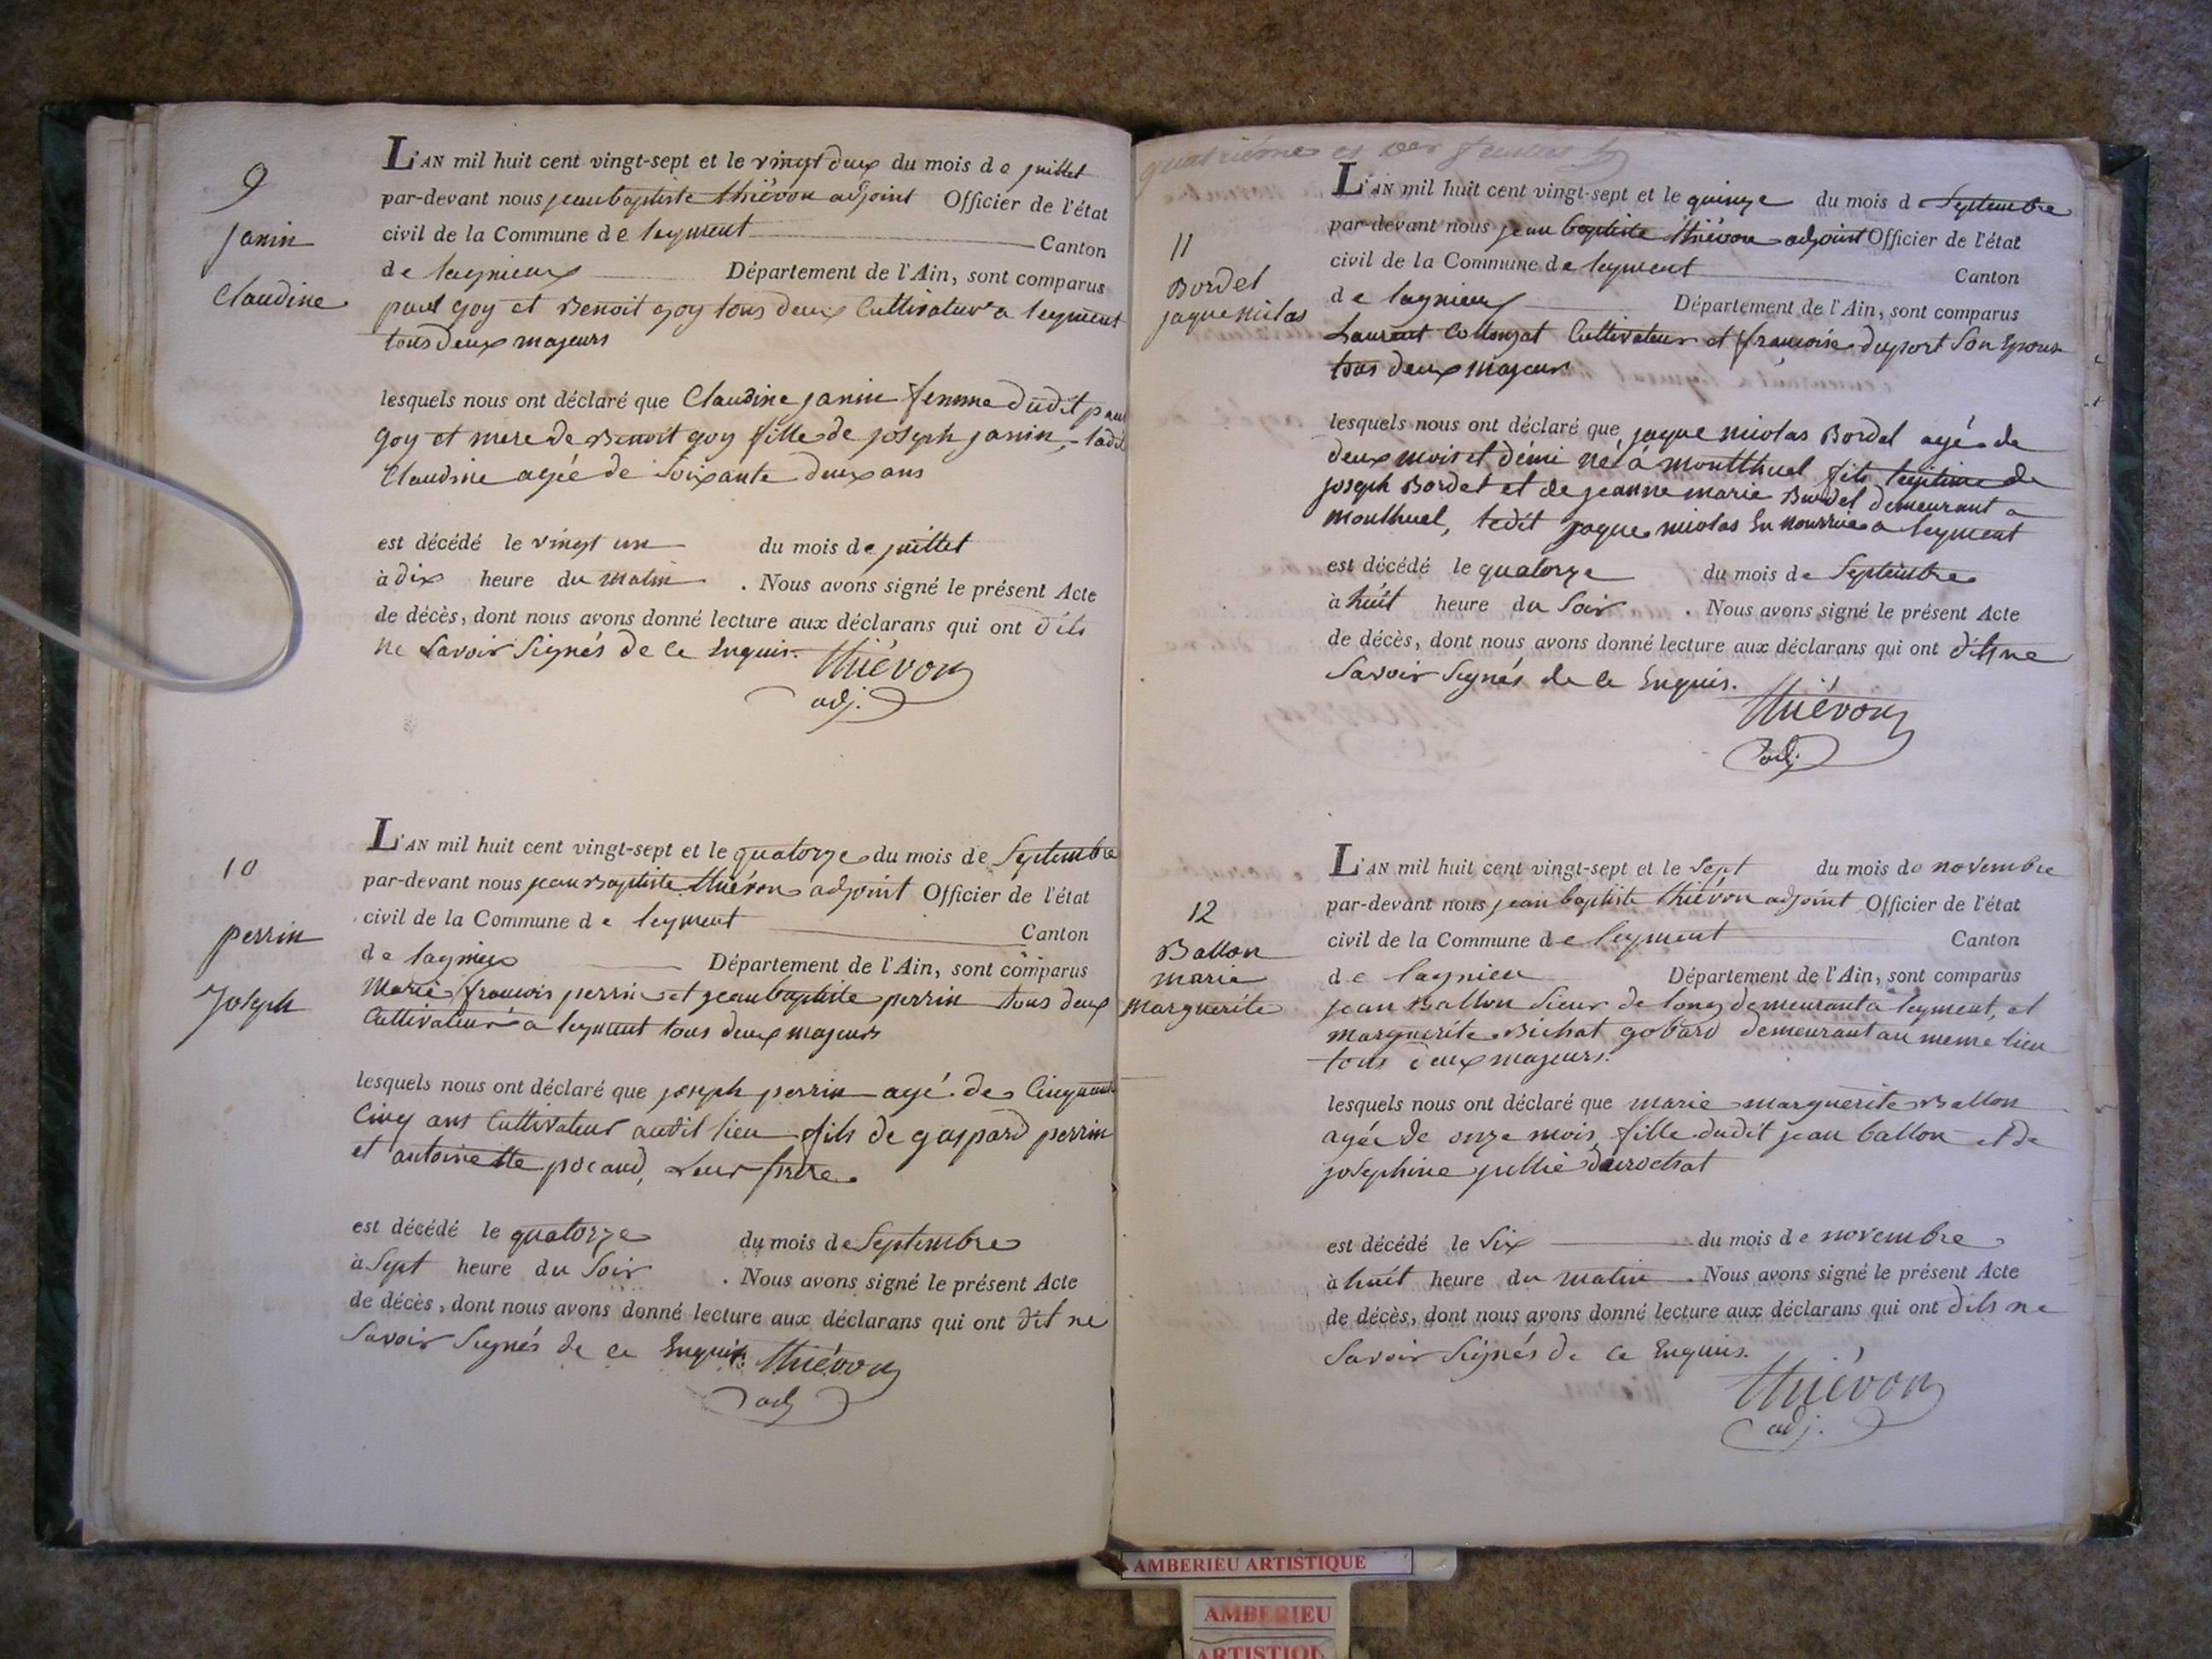 9
Janin
Claudine
L'AN mil huit cent vingt-sept et le vingt deux du mois de juillet
par-devant nous jean baptiste thiévon adjoint Officier de l'état
civil de la Commune de leyment Canton
de lagnieux Département de l'Ain, sont comparus
paul goy et Benoit goy tous deux Cultivateur a leyment
tous deux majeurs
lesquels nous ont déclaré que Claudine janin femme dudit paul
goy et mere de Benoit goy fille de joseph janin, ladit
Claudine agée de Soixante deux ans
est décédé le vingt un du mois de juillet
à dix heure du matin . Nous avons signé le présent Acte
de décès, dont nous avons donné lecture aux déclarans qui ont dits
ne Savoir Signés de ce Enquis. thiévon
adj.
10
perrin
Joseph
L'AN mil huit cent vingt-sept et le quatorze du mois de Septembre
par-devant nous jean Baptiste thiévon adjoint Officier de l'état
civil de la Commune de leyment
Canton
de lagnieu Département de l'Ain, sont comparus
Marie francois perrin et jean baptiste perrin tous deux
Cultivateur a leyment tous deux majeurs
lesquels nous ont déclaré que joseph perrin agé de Cinquante
Cinq ans Cultivateur audit lieu fils de gaspard perrin
et antoinette pocaud, Leur frere
est décédé le quatorze du mois de Septembre
à Sept heure du Soir . Nous avons signé le présent Acte
de décès, dont nous avons donné lecture aux déclarans qui ont dit ne
Savoir Signés de ce Enquis. thiévon
adj
quatrième et
11
Bordel
jaque nicolas
L'AN mil huit cent vingt-sept et le quinze du mois de Septembre
par-devant nous jean baptiste thiévon adjoint Officier de l'état
civil de la Commune de leyment Canton
de lagnieux Département de l'Ain, sont comparus
Laurent Collonzat Cultivateur et francoise duport Son Epouse
tous deux majeurs
lesquels nous ont déclaré que jaque nicolas Bordel agé de
deux mois et demi né à montthuel fils legitime de
joseph Bordel et de jeanne marie Burdel demeurant a
monthuel, ledit jaque nicolas En nourrice a leyment
est décédé le quatorze du mois de Septembre
à huit heure du Soir . Nous avons signé le présent Acte
de décès, dont nous avons donné lecture aux déclarans qui ont dits ne
Savoir Signés de ce Enquis.
thiévon
adj.
12
Ballon
marie
marguerite
L'AN mil huit cent vingt-sept et le Sept du mois de novembre
par-devant nous jean baptiste thiévon adjoint Officier de l'état
civil de la Commune de leyment Canton
de lagnieu Département de l'Ain, sont comparus
jean Ballon Sieur de long demeurant a leyment, et
marguerite Bichat gobard demeurant au meme lieu
tous deux majeurs.
lesquels nous ont déclaré que marie marguerite Ballon
agée de onze mois fille dudit jean ballon et de
josephine
est décédé le Six du mois de novembre
à huit heure du matin . Nous avons signé le présent Acte
de décès, dont nous avons donné lecture aux déclarans qui ont dits ne
Savoir Signés de ce Enquis.
thiévon
adj.
AMBERIEU ARTISTIQUE
AMBERIEU
ARTISTIQU